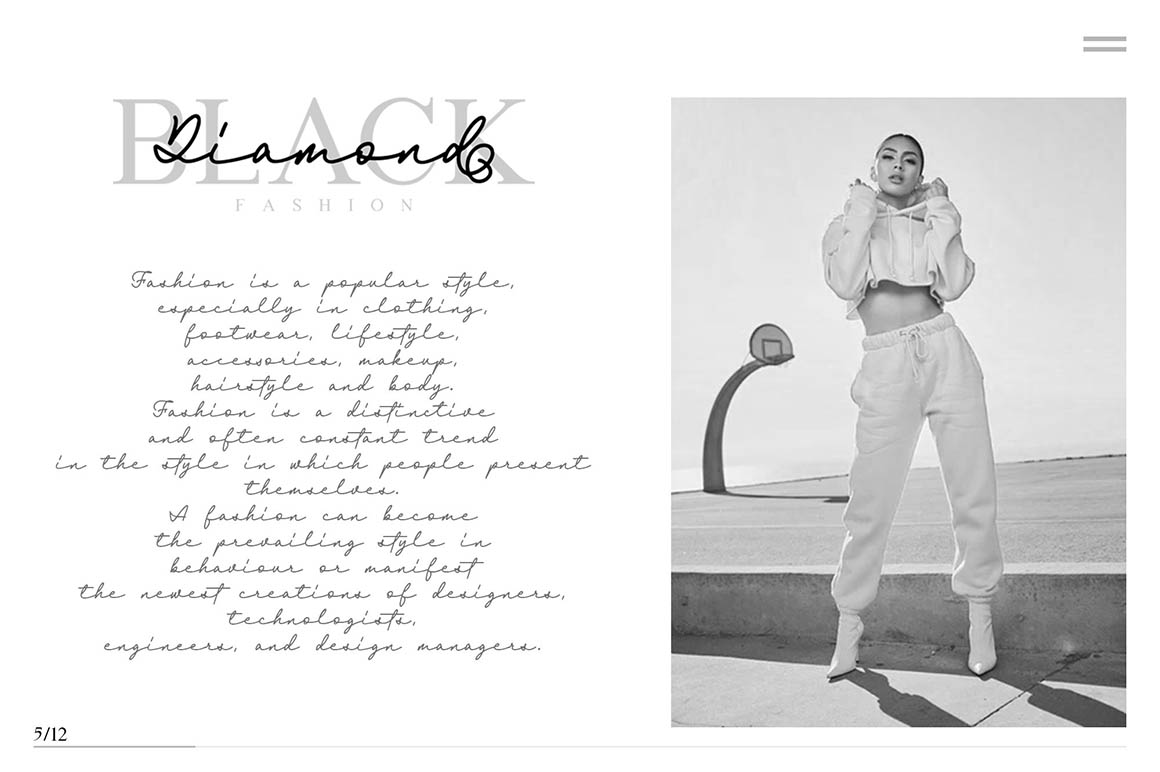 BLACK
Diamond
FASHION
Fashion is a popular style,
especially in clothing,
footwear, lifestyle,
accessories, makeup,
hairstyle and body.
Fashion is a distinctive
and often constant trend
in the style in which people present
themselves.
A fashion can become
the prevailing style in
behaviour or manifest
the newest creations of designers,
technologists,
engineers, and design managers.
5/12